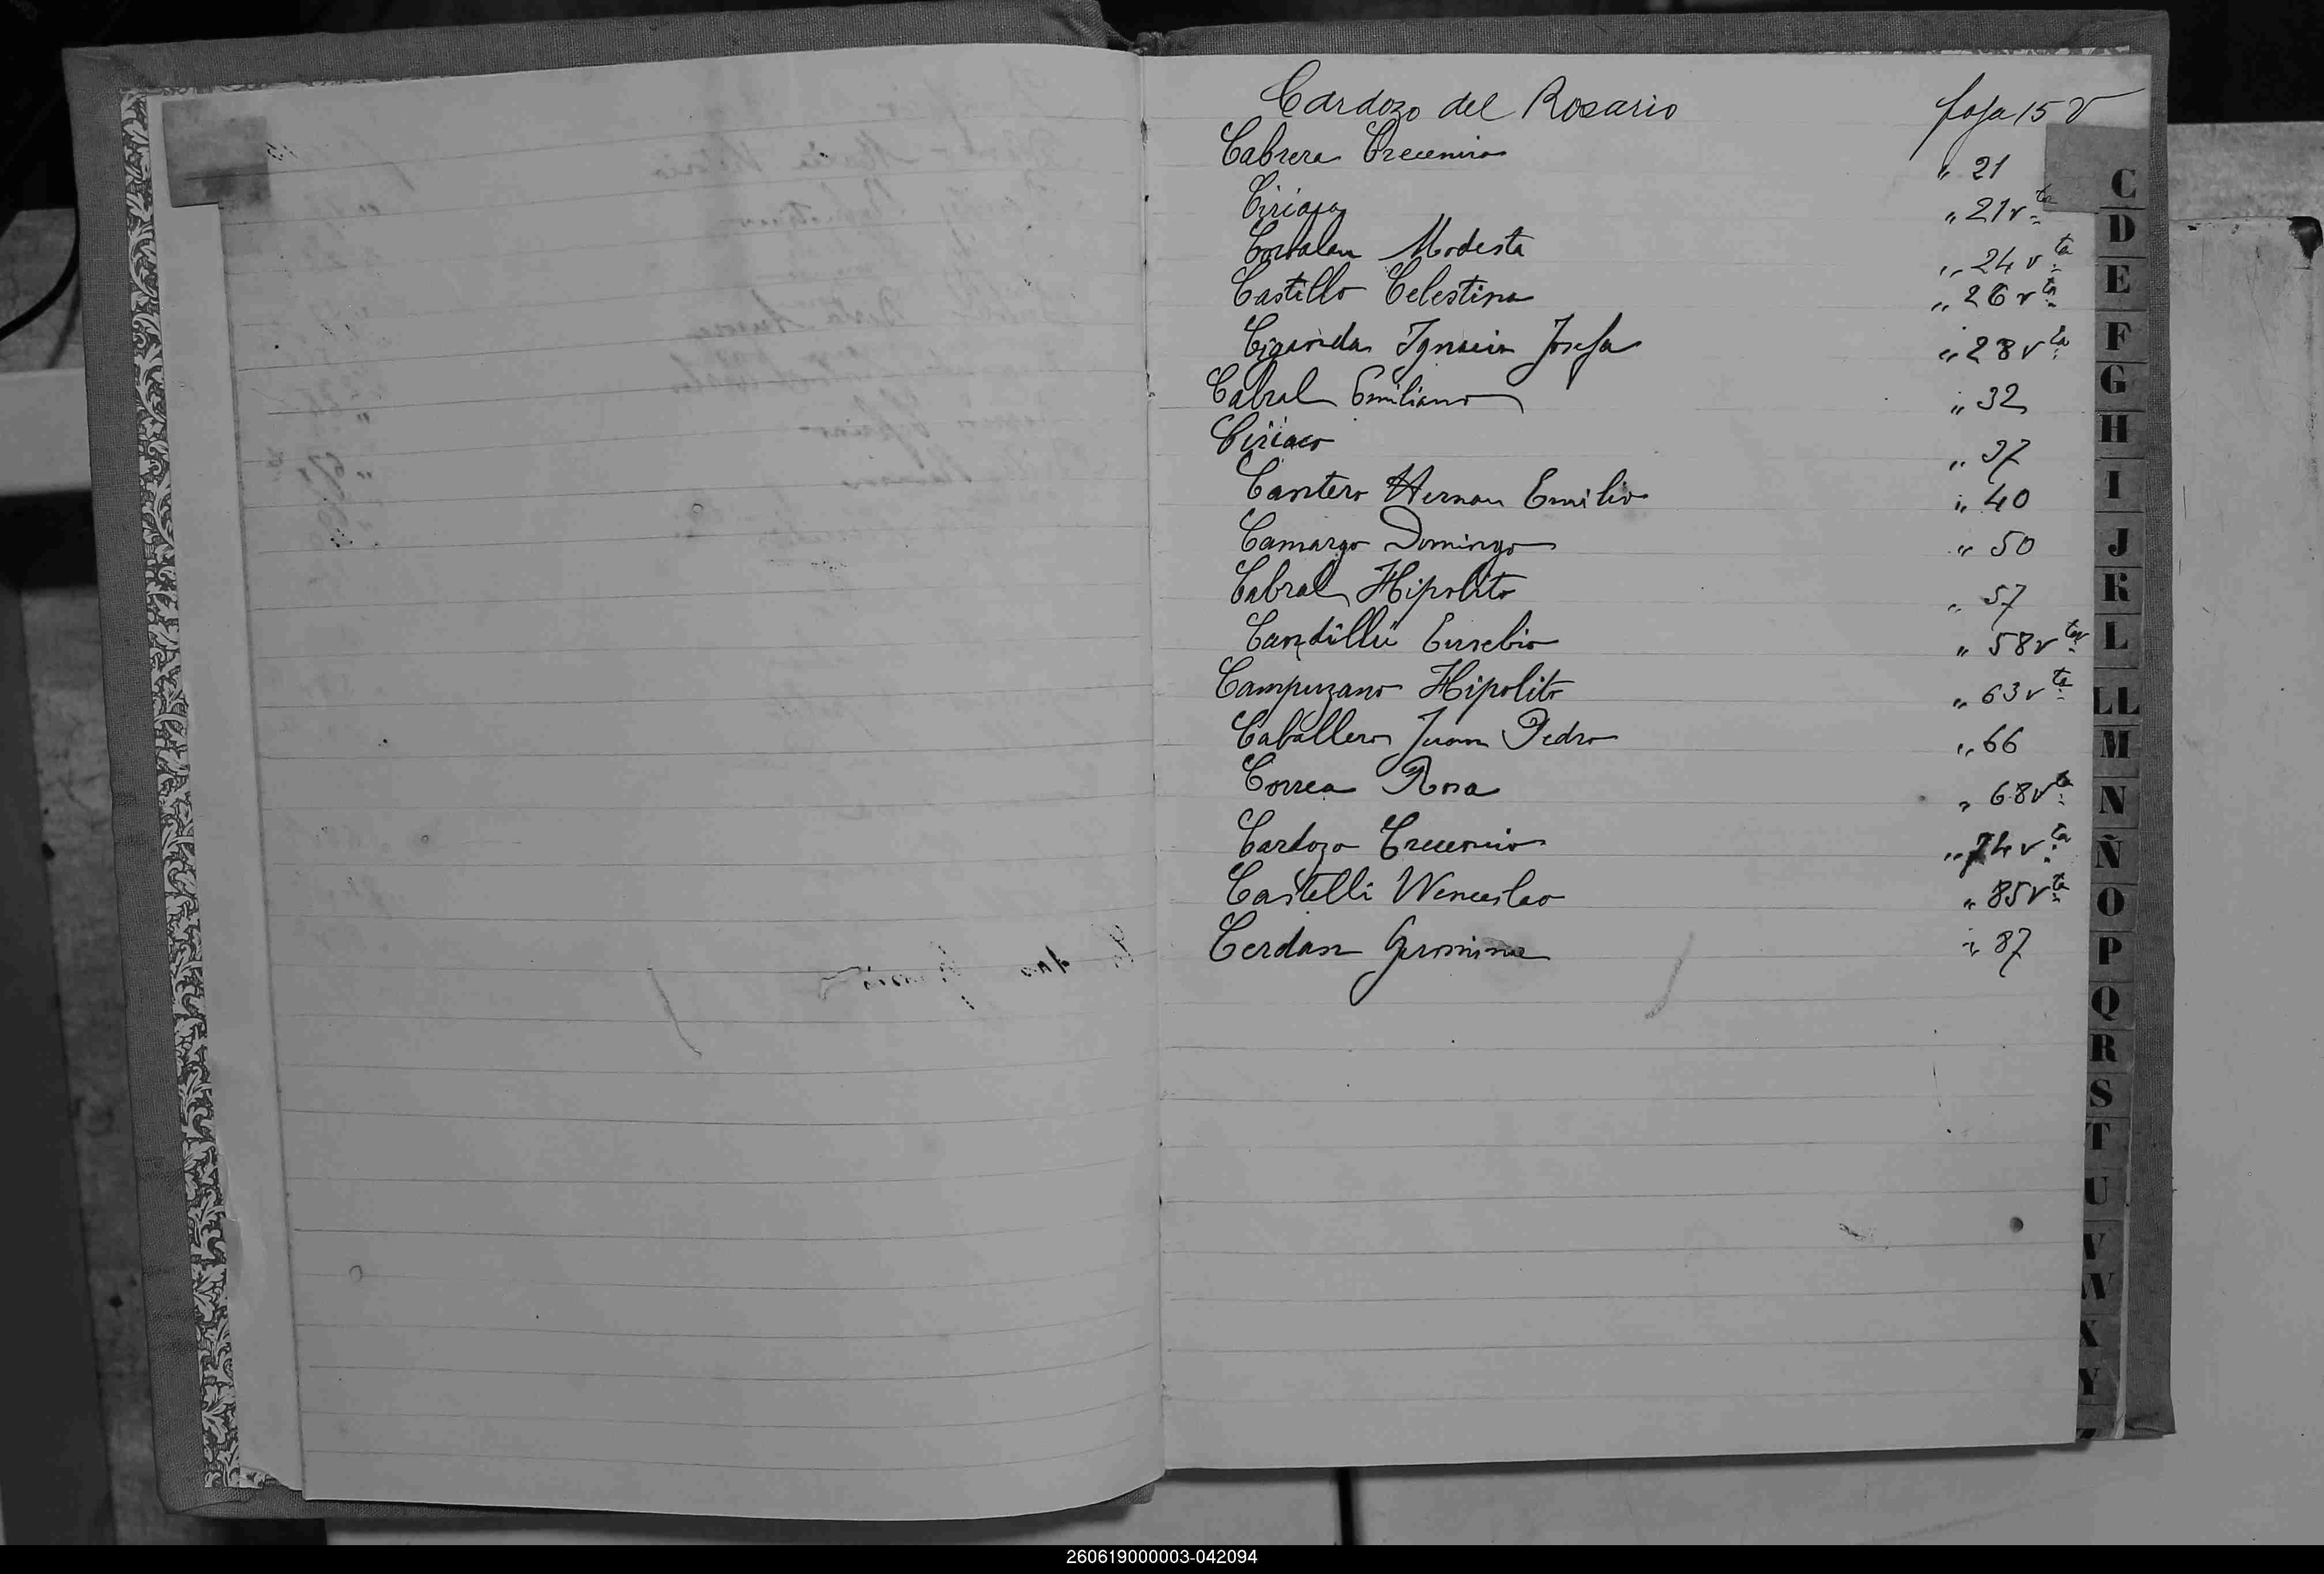 Cardozo del Rosario foja 15 v
Cabrera Crecencio " 21
Ciriaca " 21 vta
Corvalan Modesta " 24 vta
Castillo Celestina " 26 vta
Ciganda Ignacia Josefa " 28 vta
Cabral Emiliano " 32
Ciriaco " 37
Cantero Hernan Emilio " 40
Camargo Domingo " 50
Cabral Hipolito " 57
Eusebio " 58 vta
Campuzano Hipolito " 63 vta
Caballero Juan Pedro " 66
Correa Rosa " 68 vta
Cardozo Crecencio " 74 vta
Castelli Wenceslao " 85 vta
Cerdan " 87
C
D
E
F
G
H
I
J
K
L
LL
M
N
Ñ
O
P
Q
R
S
T
U
V
W
X
Y
260619000003-042094